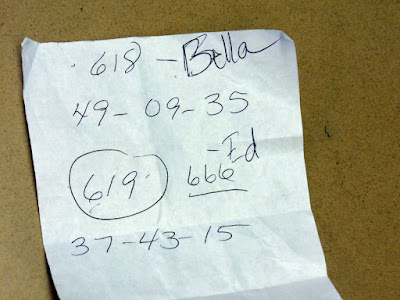 618 - Bella
49-09-35
- Ed
619 666
37-43-15